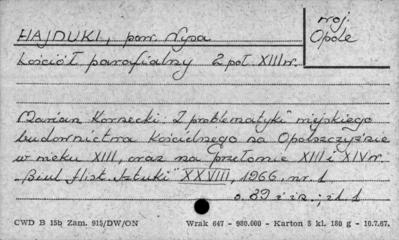 HAJDUKI, pow. Nysa
woj.
Opole
Kościół parafialny 2 poł. XIII w.
Marian Kornecki: Z problematyki miejskiego
budownictwa kościelnego na Opolszczyźnie
w wieku XIII, oraz na przełomie XIII i XIV w.
"Biul. Hist. Sztuki" XXVIII, 1966, nr. 1
s. 89 i n.; il. 1
CWD B 15b Zam. 915/DW/ON Wrak 647 - 980.000 - Karton 5 kl. 180 g - 10.7.67.